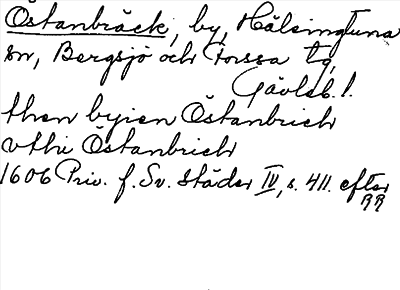 Östanbräck, by, Hälsingtuna
sn, Bergsjö och Forssa tg,
Gävleb. l.
then byien Östanbrich
vthi Östanbrich
1606 Priv. f. Sv. Städer IV, s. 411. efter
RR